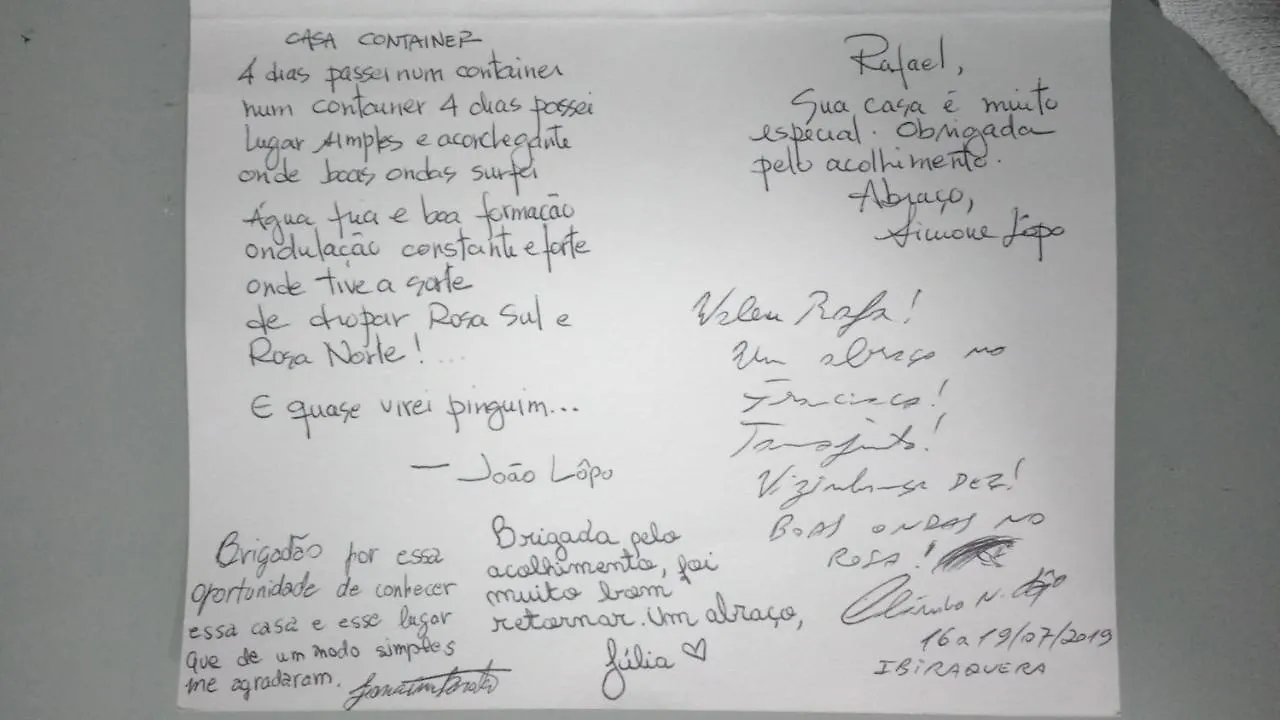 CASA CONTAINER
4 dias passei num container
num container 4 dias passei
lugar simples e aconchegante
onde boas ondas surfei
Água fria e boa formação
ondulação constante e forte
onde tive a sorte
de dropar Rosa Sul e
Rosa Norte!...
E quase virei pinguim...
— João Lôpo
Rafael,
Sua casa é muito
especial. Obrigada
pelo acolhimento.
Abraço,
Simone Lôpo
Valeu Rafa!
Um abraço no
Francisco!
Tamojunto!
Vizinhança DEZ!
BOAS ONDAS NO
ROSA!
N. Lôpo
16 a 19/07/2019
IBIRAQUERA
Brigadão por essa
oportunidade de conhecer
essa casa e esse lugar
que de um modo simples
me agradaram.
Brigada pelo
acolhimento, foi
muito bom
retornar. Um abraço,
Júlia ♡